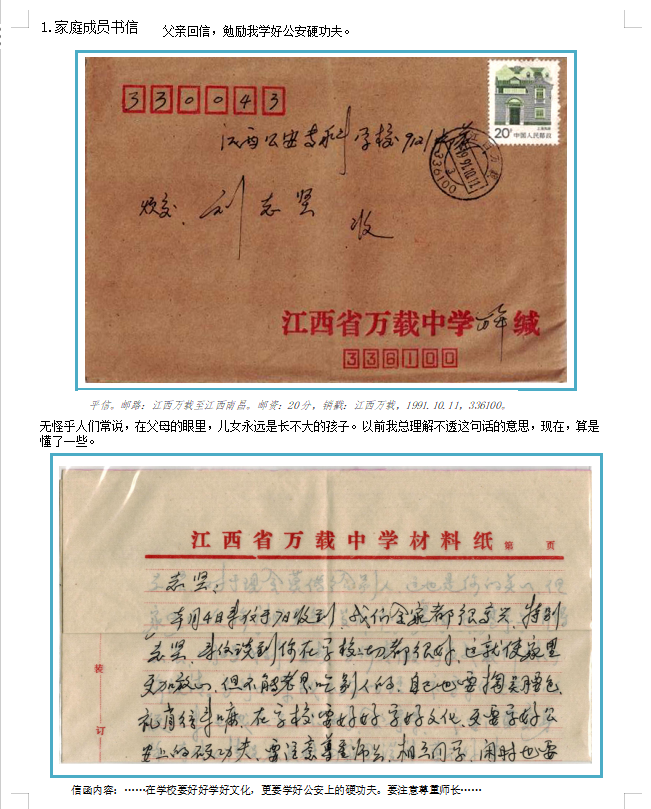 1.家庭成员书信 父亲回信，勉励我学好公安硬功夫。
330043
20分 中国人民邮政
江西公安专科学校
烦交：刘志坚 收
江西省万载中学 缄
336100
平信。邮路：江西万载至江西南昌。邮资：20分，销戳：江西万载，1991.10.11，336100。
无怪乎人们常说，在父母的眼里，儿女永远是长不大的孩子。以前我总理解不透这句话的意思，现在，算是
懂了一些。
江西省万载中学材料纸 第 页
志坚：
本月4日来信于7日收到，我们全家都很高兴，特别
志坚，来信谈到你在学校一切都很好，这就使家里
更加放心，但不能老是吃别人的，自己也要掏点腰包，
礼尚往来嘛，在学校要好好学好文化，更要学好公
安上的硬功夫，要注意尊重师长，相互同学，闲时也要
装
订
信函内容：……在学校要好好学好文化，更要学好公安上的硬功夫。要注意尊重师长……